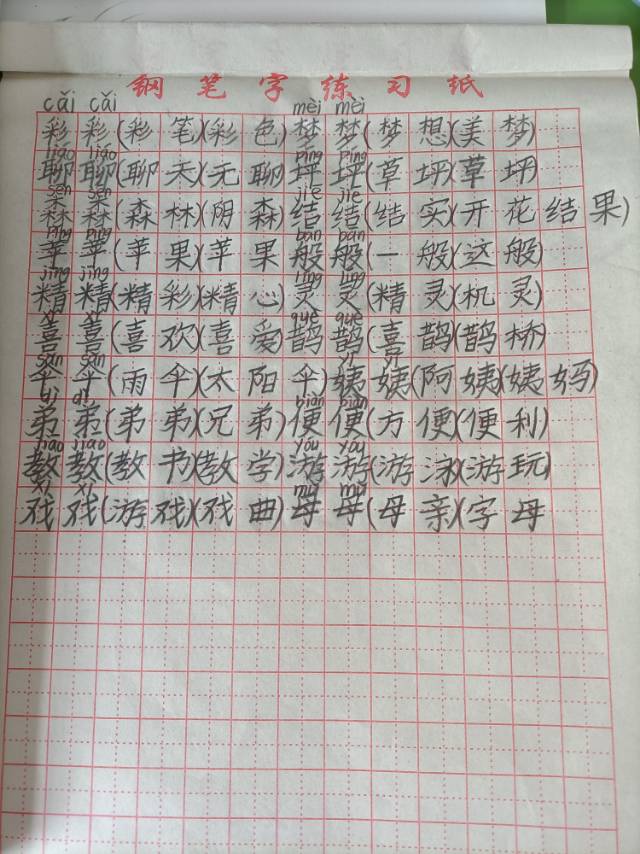 钢笔字练习纸
cǎi cǎi mèi mèi
彩彩(彩笔)(彩色)梦梦(梦想)(美梦)
liáo liáo píng píng
聊聊(聊天)(无聊)坪坪(草坪)(草坪)
sēn sēn jiē jiē
森森(森林)(阴森)结结(结实)(开花结果)
píng píng bān bān
苹苹(苹果)(苹果)般般(一般)(这般)
jīng jīng líng líng
精精(精彩)(精心)灵灵(精灵)(机灵)
xǐ xǐ què què
喜喜(喜欢)(喜爱)鹊鹊(喜鹊)(鹊桥)
sǎn sǎn yí yí
伞伞(雨伞)(太阳伞)姨姨(阿姨)(姨妈)
dì dì biàn biàn
弟弟(弟弟)(兄弟)便便(方便)(便利)
jiāo jiāo yóu yóu
教教(教书)(教学)游游(游泳)(游玩)
xì xì mǔ mǔ
戏戏(游戏)(戏曲)母母(母亲)(字母